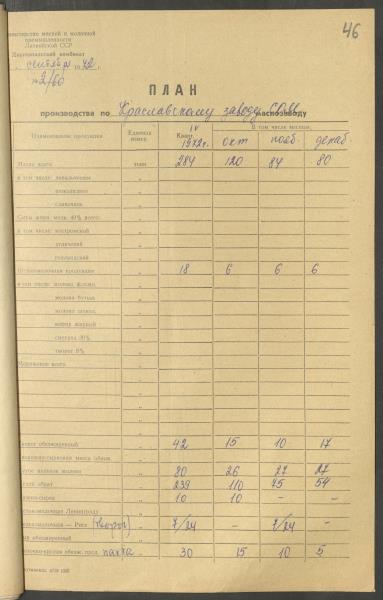 46
министерство мясной и молочной
промышленности
Латвийской ССР
комбинат
" сентября 1972 г.
№ 2/60
ПЛАН
производства по Краславскому заводу СОМ маслозаводу
Наименование продукции Единица измер. IV Кварт. 1972г. В том числе месяцы:
окт нояб. декаб.
Масло всего тонн 284 120 84 80
в том числе: "
"
сливочное "
Сыры жирн. мель. 40% всего "
в том числе: костромской "
угличский "
голландский "
Цельномолочная продукция " 18 6 6 6
в том числе: молоко фляжн. "
молоко бутыл. "
молоко "
кефир жирный "
сметана 30% "
творог 9% "
Мороженое всего "
обезжиренный " 42 15 10 17
масса обезж. "
цельное молоко " 80 26 27 27
обрат " 239 110 75 54
" 10 10 – –
Ленинграду "
– Рига (творог) " 7/24 – 7/24 –
обезжиренный "
прод. пахта " 30 15 10 5